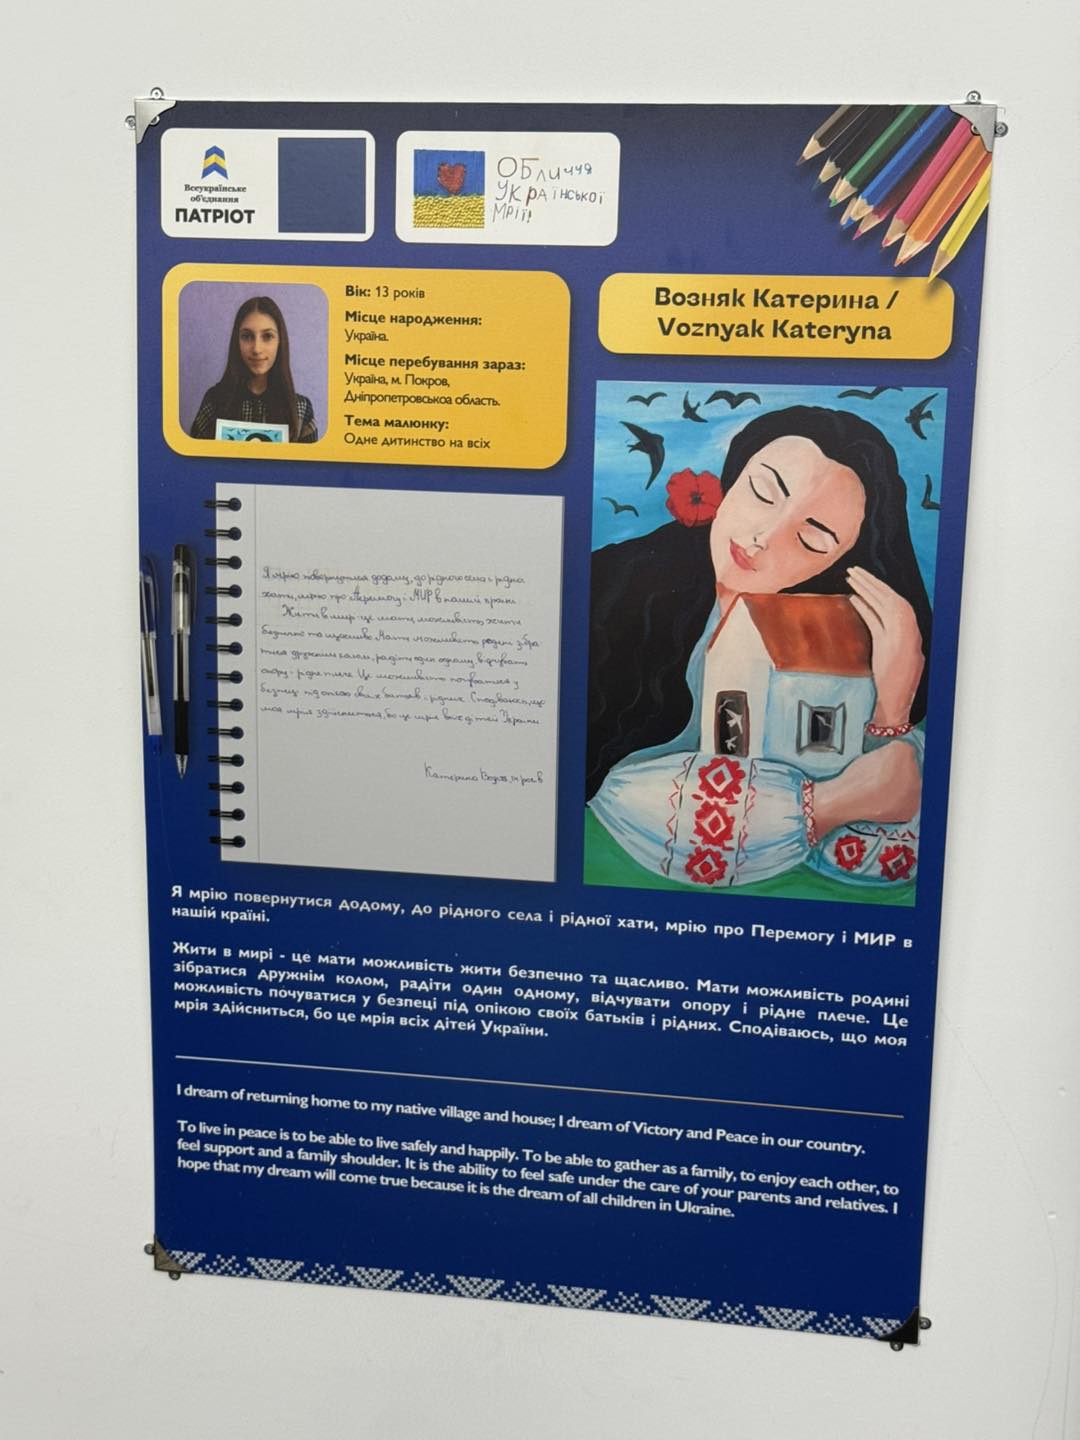 Всеукраїнське
об'єднання
ПАТРІОТ
ОБличчя
УКРАїнської
Мрії!
Вік: 13 років
Місце народження:
Україна.
Місце перебування зараз:
Україна, м. Покров,
Дніпропетровськоа область.
Тема малюнку:
Одне дитинство на всіх
Возняк Катерина /
Voznyak Kateryna
Я мрію повернутися додому, до рідного села і рідна
хати, мрію про Перемогу і МИР в нашій країні.
Жити в мирі це мати можливість жити
безпечно та щасливо. Мати можливість родині зібра
тися дружнім колом, радіти один одному, відчувати
опору і рідне плече. Це можливість почуватися у
безпеці під опікою своїх батьків і рідних. Сподіваюсь, що
моя мрія здійсниться, бо це мрія всіх дітей України
Катерина
Я мрію повернутися додому, до рідного села і рідної хати, мрію про Перемогу і МИР в
нашій країні.
Жити в мирі - це мати можливість жити безпечно та щасливо. Мати можливість родині
зібратися дружнім колом, радіти один одному, відчувати опору і рідне плече. Це
можливість почуватися у безпеці під опікою своїх батьків і рідних. Сподіваюсь, що моя
мрія здійсниться, бо це мрія всіх дітей України.
I dream of returning home to my native village and house; I dream of Victory and Peace in our country.
To live in peace is to be able to live safely and happily. To be able to gather as a family, to enjoy each other, to
feel support and a family shoulder. It is the ability to feel safe under the care of your parents and relatives. I
hope that my dream will come true because it is the dream of all children in Ukraine.